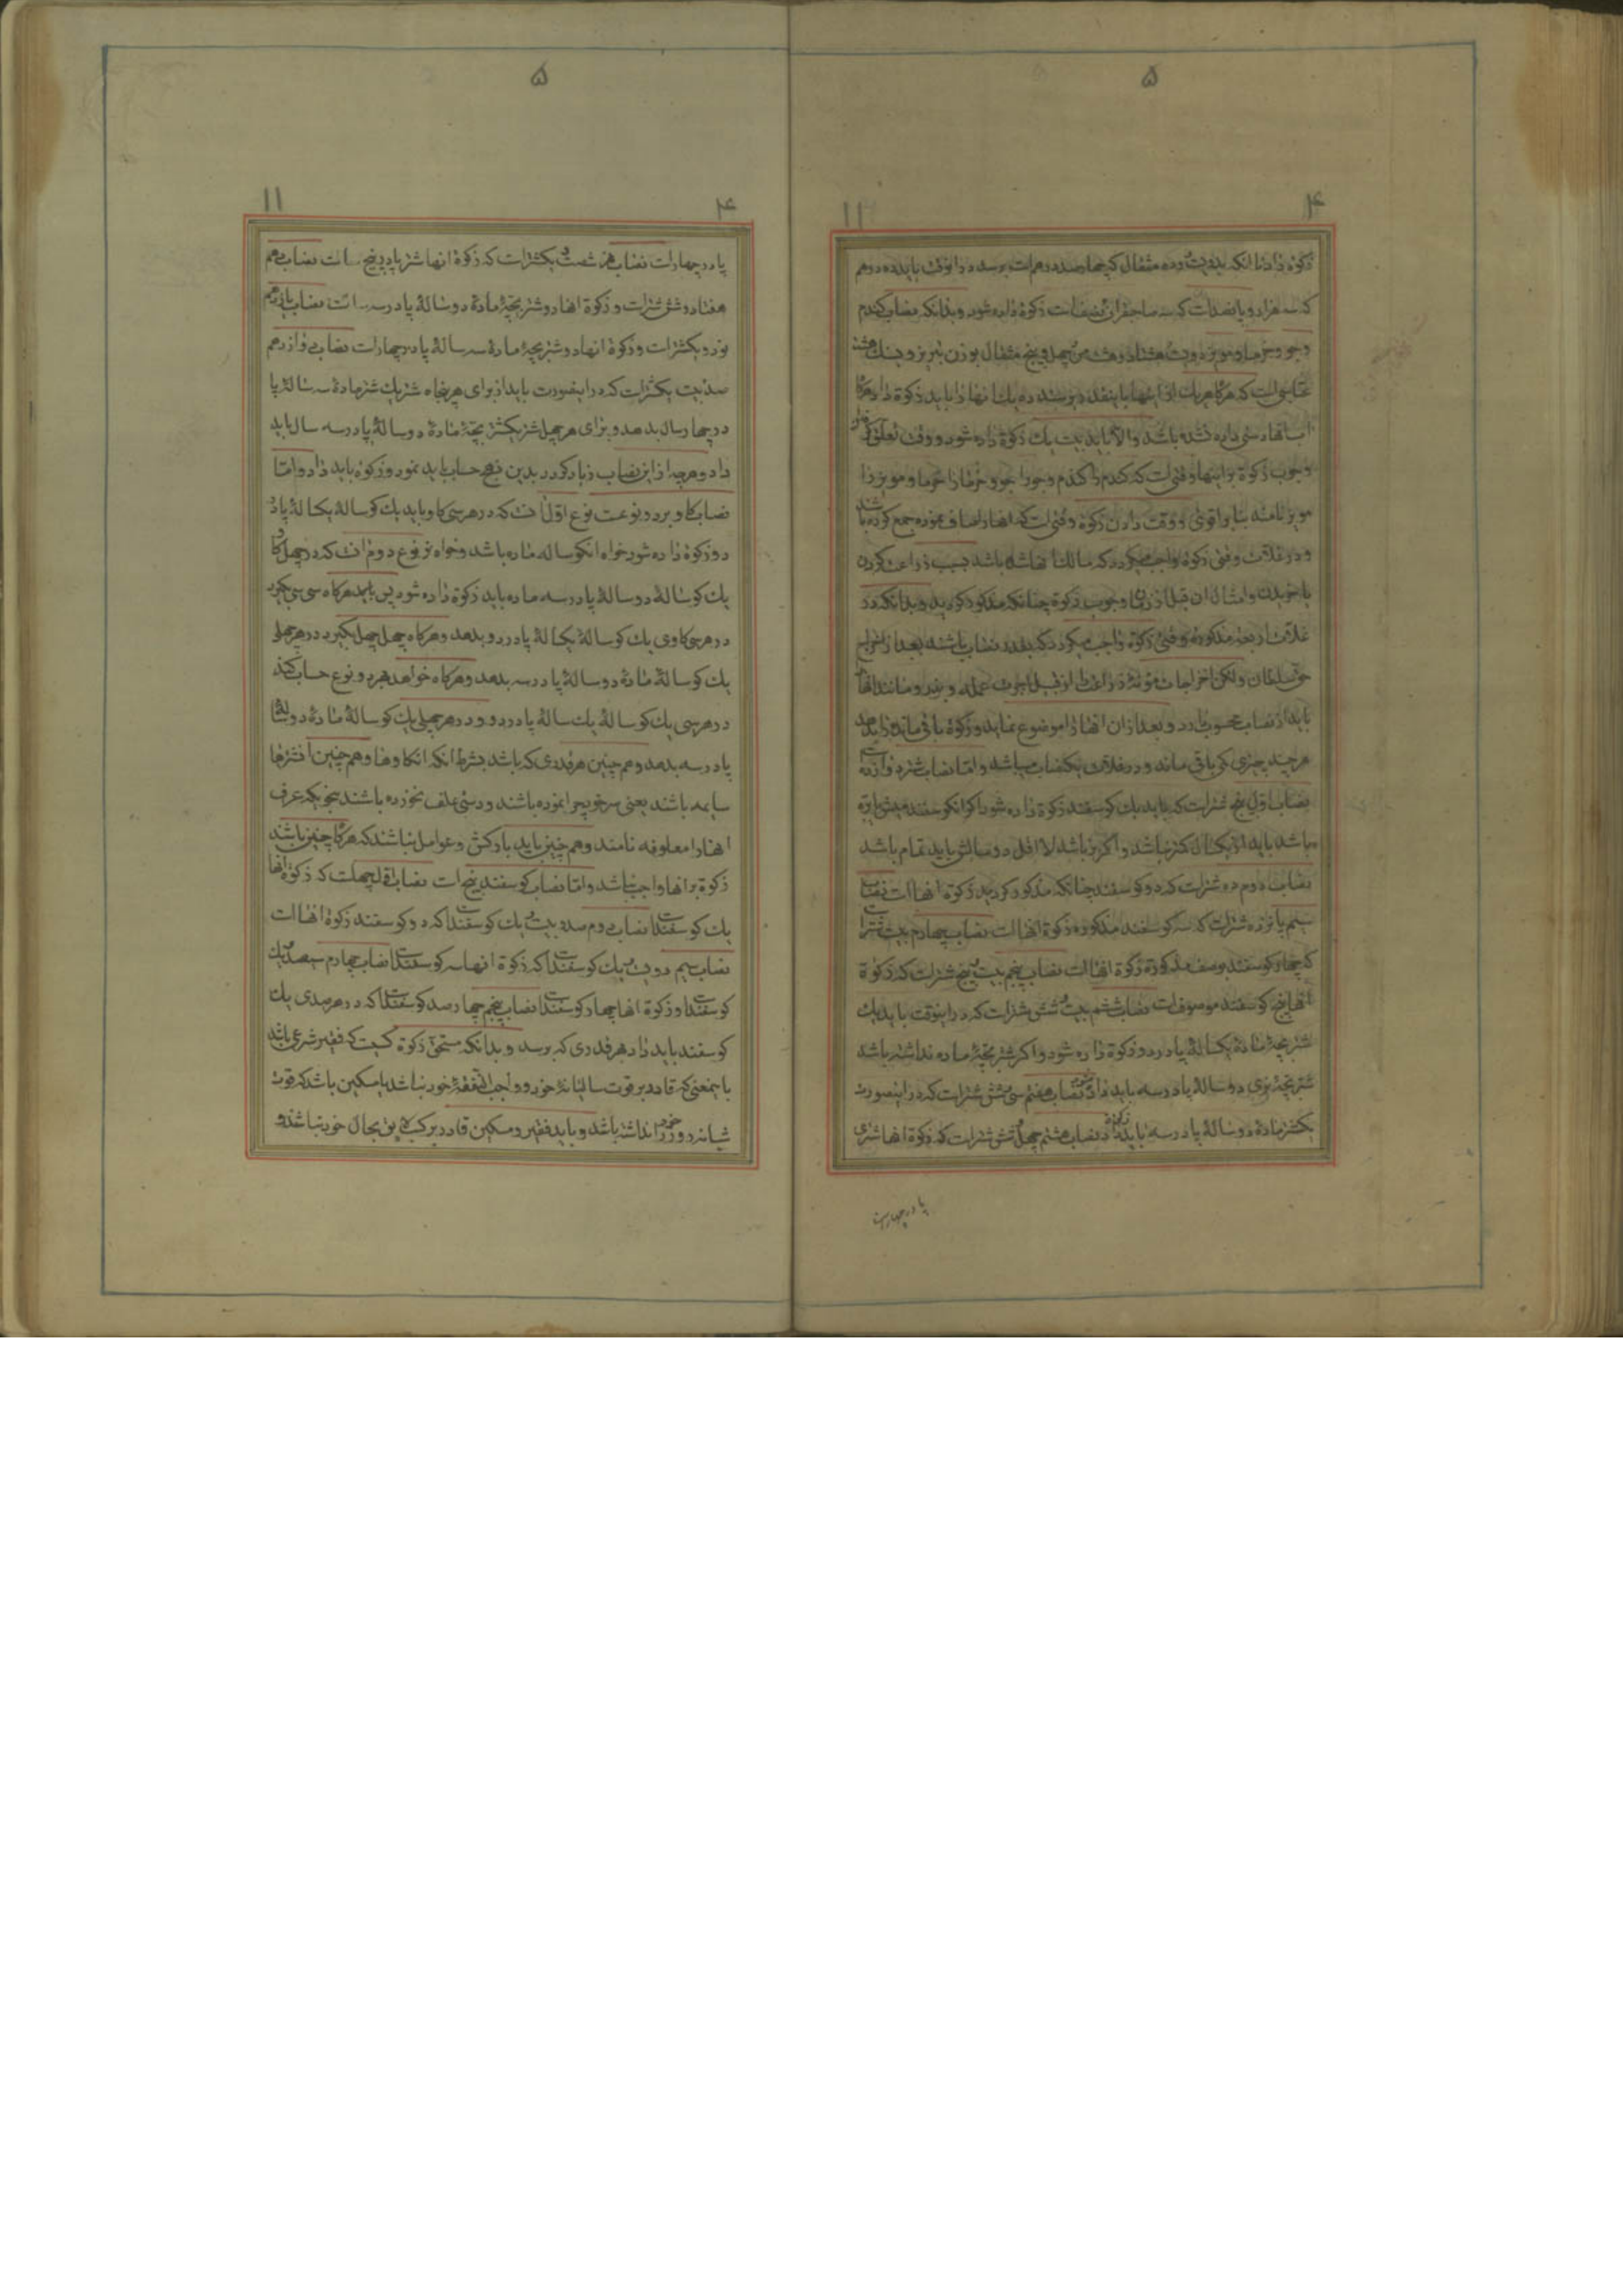 ۵
۴
۱۱
زکوة داد تا انکه بدویست و ده مثقال که چهارصد درهم است برسد در انوقت باید ده درهم
که سه هزار و پانصد است که سه صاحبقران نصف است زکوة داده شود و بدانکه نصاب کندم
و جو و خرما و مویز دویست هشتاد و هشت من چهل و پنج مثقال بوزن تبریز و بسنک هشت
عباسی است که هرکاه هریک از اینها باینقدر برسند ده یک انها را باید زکوة داد هرکاه
اب انها دستی داده نشده باشد والا باید بیست یک زکوة داده شود و وقت تعلق کرفتن
وجوب زکوة بر اینها وقتی است که کندم را کندم و جو را جو و خرما را خرما و مویز را
مویز نامند بنا بر اقوی و وقت دادن زکوة وقتی است که انها را صاف نموده جمع کرده باشد
و در غلات وقتی زکوة واجب میکردد که مالک انها شده باشد بسبب زراعت کردن
یا خریدن و امثال ان قبل از زمان وجوب زکوة چنانکه مذکور کردید و بدانکه در
غلات اربعه مذکوره وقتی زکوة واجب میکردد که بقدر نصاب باشند بعد از اخراج
حق سلطان ولکن اخراجات مؤنه زراعت از قبیل اجرت عمله و بذر و مانند انها
باید از نصاب محسوب دارد و بعد از ان انها را موضوع نماید و زکوة باقی مانده را بدهد
هر چند چیزی که باقی ماند و در غلات یک نصاب میباشد و اما نصاب شتر دوازده است
نصاب اول پنج شتر است که باید یک کوسفند زکوة داده شود اکر انکوسفند میش یا بره
باشد باید از یکسال کمتر نباشد و اکر بز باشد لااقل دو سالش باید تمام باشد
نصاب دوم ده شتر است که دو کوسفند چنانکه مذکور کردید زکوة انها است نصاب
سیم پانزده شتر است که سه کوسفند مذکوره زکوة انها است نصاب چهارم بیست شتر است
که چهار کوسفند بوصف مذکوره زکوة انها است نصاب پنجم بیست و پنج شتر است که زکوة
انها پنج کوسفند موصوف است نصاب ششم بیست و شش شتر است که در اینوقت باید یک
شتر بچۀ مادۀ یکسالۀ پا در دو زکوة داده شود و اکر شتر بچۀ ماده نداشته باشد
شتر بچۀ نری دو سالۀ پا در سه باید داد نصاب هفتم سی و شش شتر است که در اینصورت
یکشتر مادۀ دو سالۀ پا در سه باید زکوة داد نصاب هشتم چهل و شش شتر است که زکوة انها شتری
پا در چهار است
۵
۴
۱۱
پا در چهار است نصاب نهم شصت و یکشتر است که زکوة انها شتر پا در پنج است نصاب دهم
هفتاد و شش شتر است و زکوة انها دو شتر بچۀ مادۀ دو سالۀ پا در سه است نصاب یازدهم
نود و یکشتر است و زکوة انها دو شتر بچۀ مادۀ سه سالۀ پا در چهار است نصاب دوازدهم
صد بیست یکشتر است که در اینصورت باید از برای هر پنجاه شتر یک شتر مادۀ سه سالۀ پا
در چهار سال بدهد و برای هر چهل شتر یکشتر بچۀ مادۀ دو سالۀ پا در سه سال باید
داد و هرچه از این نصاب زیاد کردد بدین نهج حساب باید نمود و زکوة باید داد و اما
نصاب کاو بر دو نوعست نوع اول انست که در هر سی کاو باید یک کوسالۀ یکسالۀ پا در
دو زکوة داده شود خواه انکوساله ماده باشد و خواه نر نوع دوم انست که در چهل کاو
یک کوسالۀ دو سالۀ پا در سه ماده باید زکوة داده شود پس باید هرکاه سی سی بکیرد
در هر سی کاوی یک کوسالۀ یکسالۀ پا در دو بدهد و هرکاه چهل چهل بکیرد در هر چهل
یک کوسالۀ مادۀ دو سالۀ پا در سه بدهد و هرکاه خواهد بهر دو نوع حساب کند
در هر سی یک کوسالۀ یک سالۀ پا در دو و در هر چهلی یک کوسالۀ مادۀ دو سالۀ
پا در سه بدهد و هم چنین هر قدری که باشد بشرط انکه انکاوها و هم چنین ان شترها
سایمه باشند یعنی سرخود چرا نموده باشند و دستی علف نخورده باشند بنحویکه عرف
انها را معلوفه نامند و هم چنین باید بارکش و عوامل نباشند که هرکاه چنین باشند
زکوة بر انها واجب نباشد و اما نصاب کوسفند پنج است نصاب اول چهلست که زکوة انها
یک کوسفند است نصاب دوم صد و بیست و یک کوسفند است که دو کوسفند زکوة انها است
نصاب سیم دویست و یک کوسفند است که زکوة انها سه کوسفند است نصاب چهارم سیصد و یک
کوسفند است و زکوة انها چهار کوسفند است نصاب پنجم چهارصد کوسفند است که در هر صدی یک
کوسفند باید داد هر قدری که برسد و بدانکه مستحق زکوة کسیست که فقیر شرعی باشد
باینمعنی که قادر بر قوت سالیانۀ خود و واجب النفقۀ خود نباشد یا مسکین باشد که قوت
شبانه روز خود را نداشته باشد و باید فقیر و مسکین قادر بر کسب لایق بحال خود نباشد و